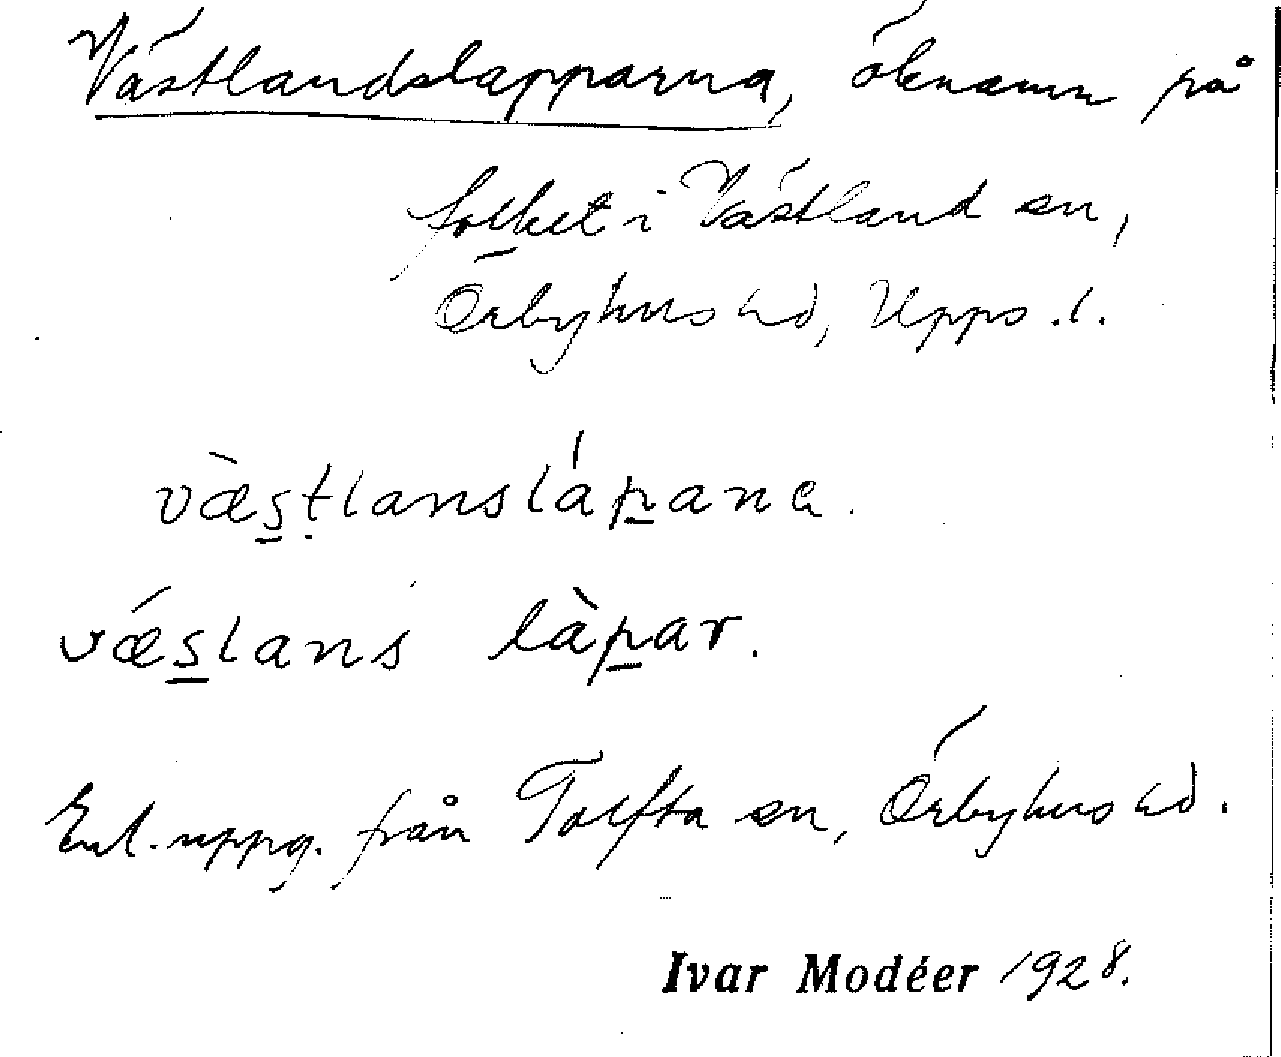 Västlandslapparna, öknamn på
folket i Västland sn,
Örbyhus hd, Upps. l.
væ̀s̠ṭlanslápa̠na.
vǽs̠lans làp̠ar.
Enl. uppg. från Tolfta sn, Örbyhus hd.
Ivar Modéer 1928.